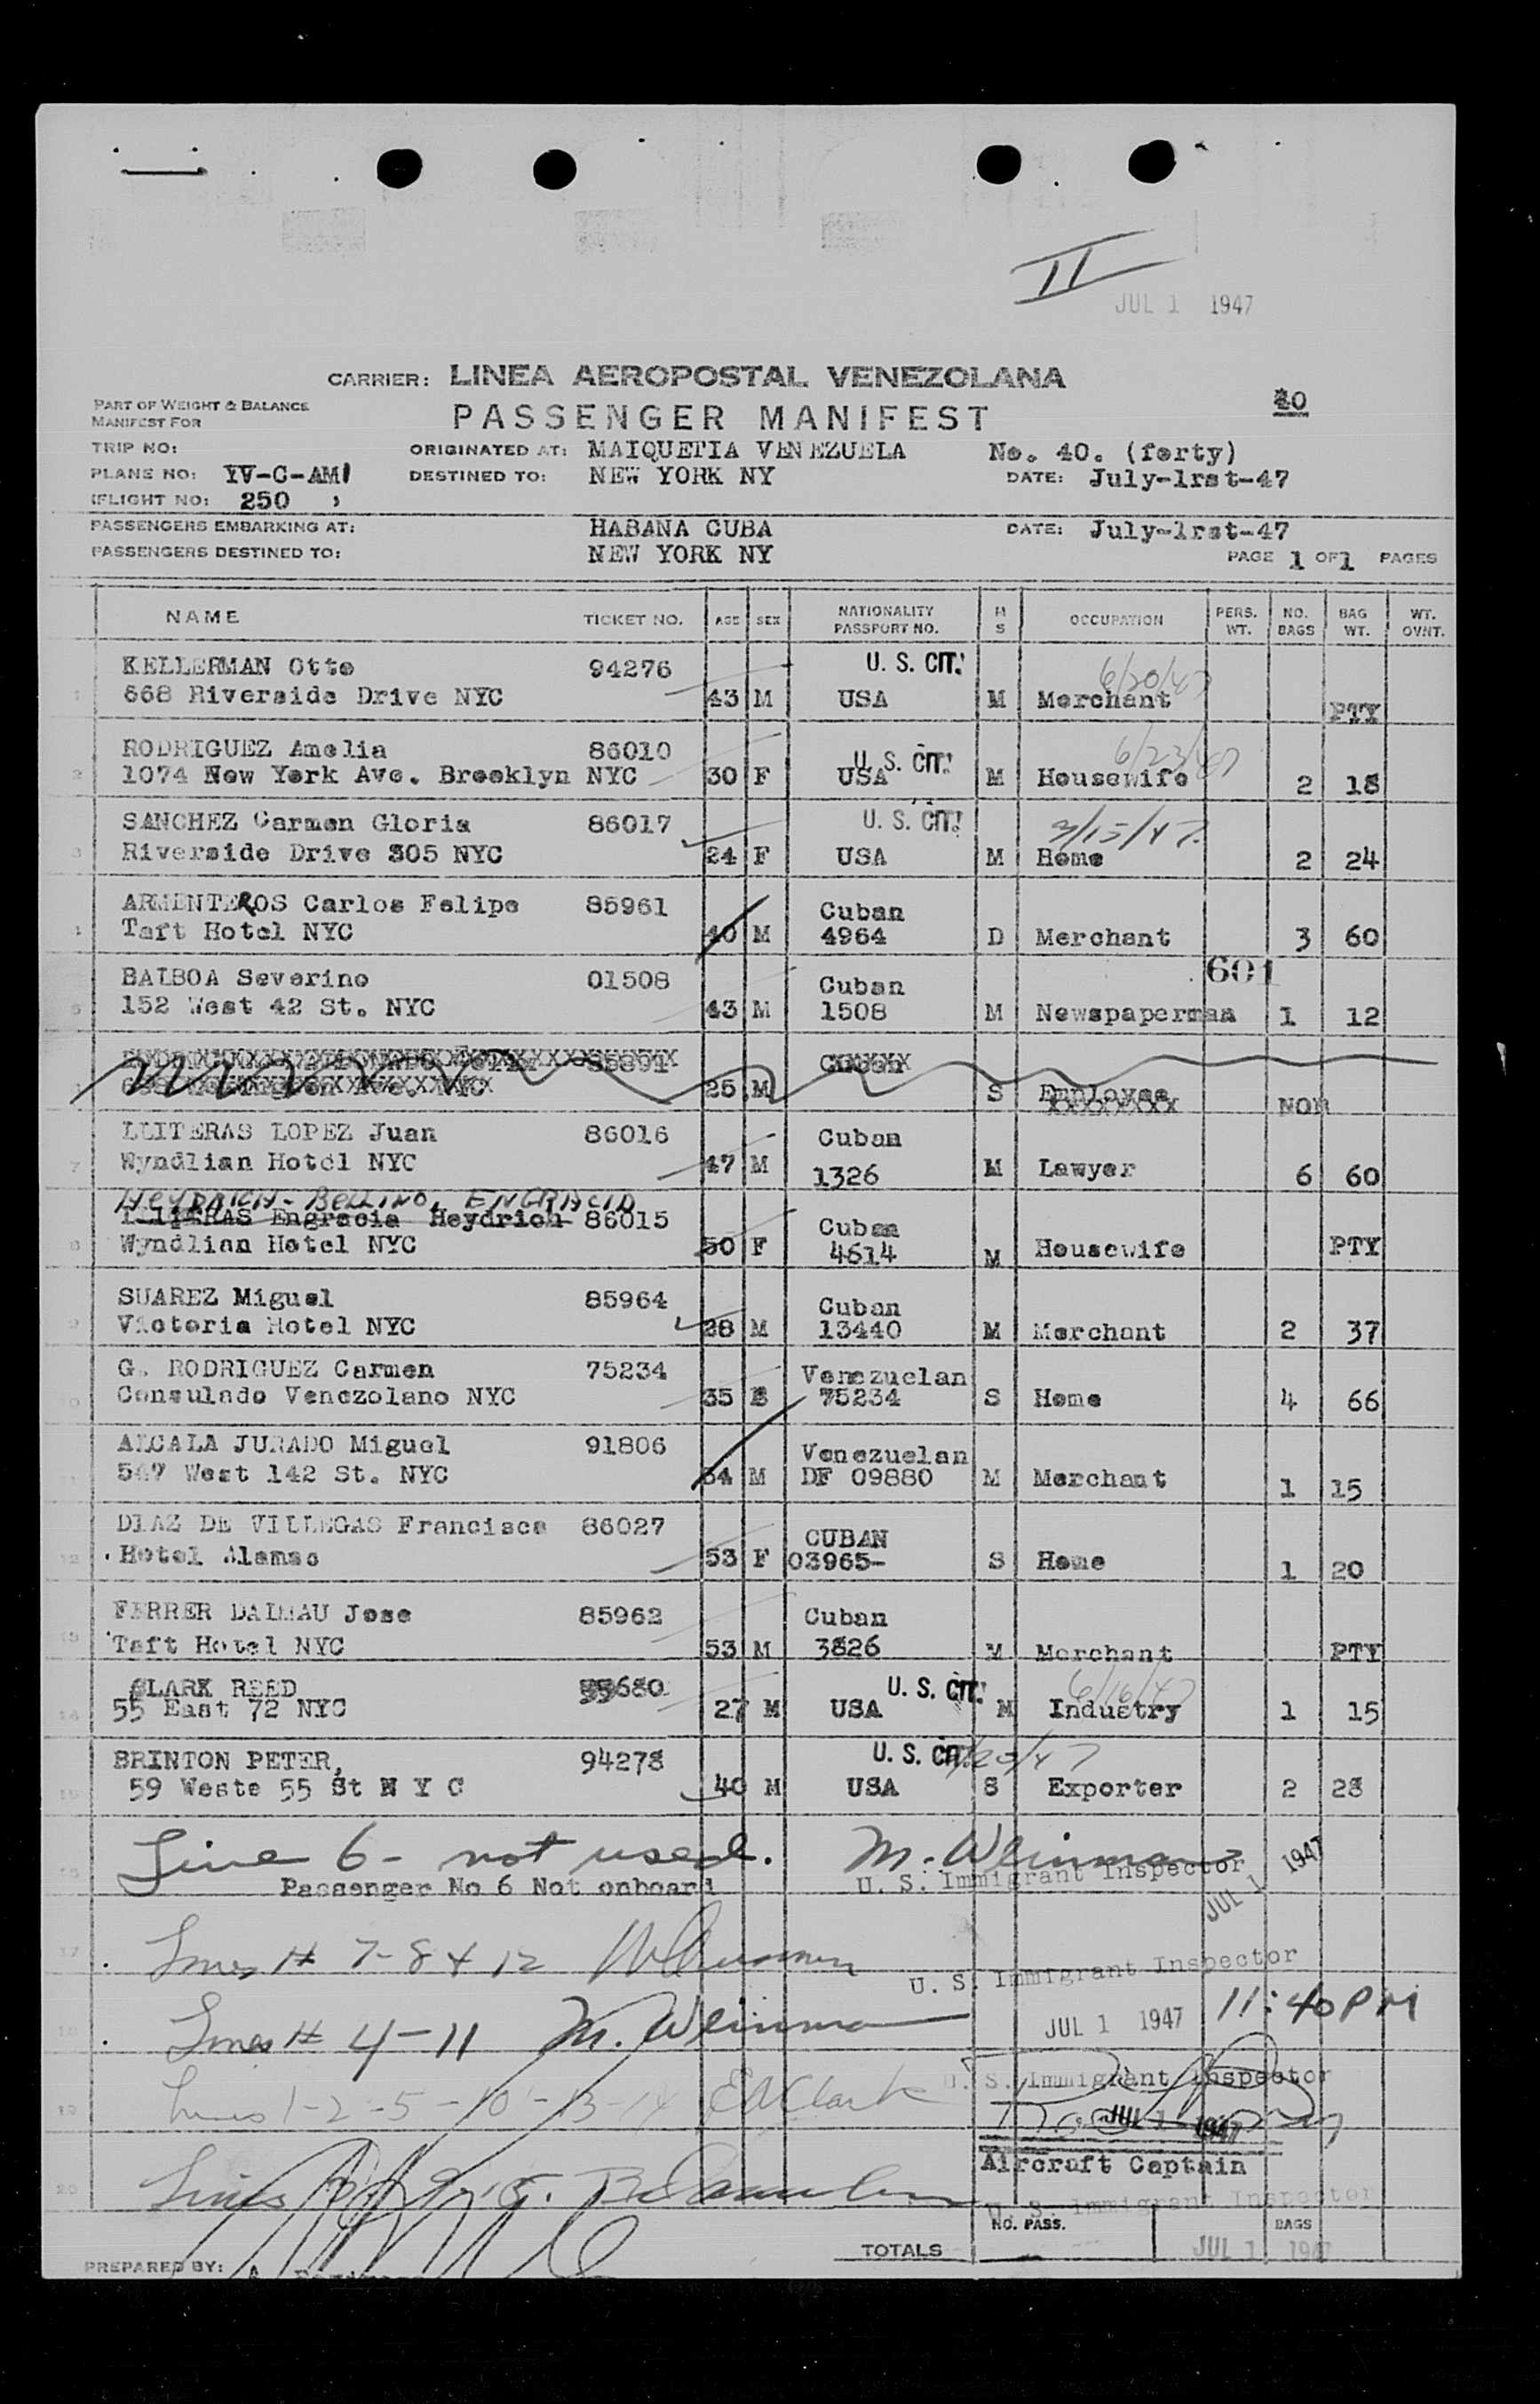 II
JUL 1 1947
CARRIER: LINEA AEROPOSTAL VENEZOLANA
40
PART OF WEIGHT & BALANCE
MANIFEST FOR
PASSENGER MANIFEST
TRIP NO: ORIGINATED AT: MAIQUETIA VENEZUELA No. 40. (forty)
PLANE NO: YV-C-AM DESTINED TO: NEW YORK NY DATE: July-1rst-47
FLIGHT NO: 250
PASSENGERS EMBARKING AT: HABANA CUBA DATE: July-1rst-47
PASSENGERS DESTINED TO: NEW YORK NY
PAGE 1 OF 1 PAGES
NAME TICKET NO. AGE SEX NATIONALITY PASSPORT NO. M S OCCUPATION PERS. WT. NO. BAGS BAG WT. WT. OVNT.
KELLERMAN Otto 94276 U. S. CIT. 6/20/47
1 668 Riverside Drive NYC 43 M USA M Merchant PTY
RODRIGUEZ Amelia 86010 U. S. CIT. 6/23/47
2 1074 New York Ave. Brooklyn NYC 30 F USA M Housewife 2 18
SANCHEZ Carmen Gloria 86017 U. S. CIT. 3/15/47
3 Riverside Drive 305 NYC 24 F USA M Home 2 24
ARMENTEROS Carlos Felipe 85961 Cuban
4 Taft Hotel NYC 40 M 4964 D Merchant 3 60
BALBOA Severino 01508 Cuban 601
5 152 West 42 St. NYC 43 M 1508 M Newspaperman 1 12
25 M S Employee NOR
LLITERAS LOPEZ Juan 86016 Cuban
7 Wyndlian Hotel NYC 47 M 1326 M Lawyer 6 60
HEYDRICH-BELLINO, ENGRACIA
LLITERAS Engracia Heydrich 86015 Cuban
8 Wyndlian Hotel NYC 50 F 4614 M Housewife PTY
SUAREZ Miguel 85964 Cuban
9 Victoria Hotel NYC 28 M 13440 M Merchant 2 37
G. RODRIGUEZ Carmen 75234 Venezuelan
10 Consulado Venezolano NYC 35 75234 S Home 4 66
ALCALA JURADO Miguel 91806 Venezuelan
11 547 West 142 St. NYC 34 M DF 09880 M Merchant 1 15
DIAZ DE VILLEGAS Francisca 86027 CUBAN
12 Hotel Alamac 53 F 03965- S Home 1 20
FERRER DALMAU Jose 85962 Cuban
13 Taft Hotel NYC 53 M 3826 M Merchant PTY
CLARK REED 680 U. S. CIT. 6/16/47
14 55 East 72 NYC 27 M USA M Industry 1 15
BRINTON PETER, 94278 U. S. CIT.
15 59 Weste 55 St N Y C 40 M USA S Exporter 2 28
16 Line 6- not used. M. Weinman
Passenger No 6 Not onboard U. S. Immigrant Inspector JUL 1 1947
17 Lines # 7-8 & 12
U. S. Immigrant Inspector
18 Lines # 4-11 M. Weinman JUL 1 1947 11:40 PM
19 Lines 1-2-5-10-13-14 E Clark U. S. Immigrant Inspector
JUL 1 1947
Aircraft Captain
20 Lines
U. S. Immigrant Inspector
NO. PASS. BAGS
TOTALS JUL 1 1947
PREPARED BY: